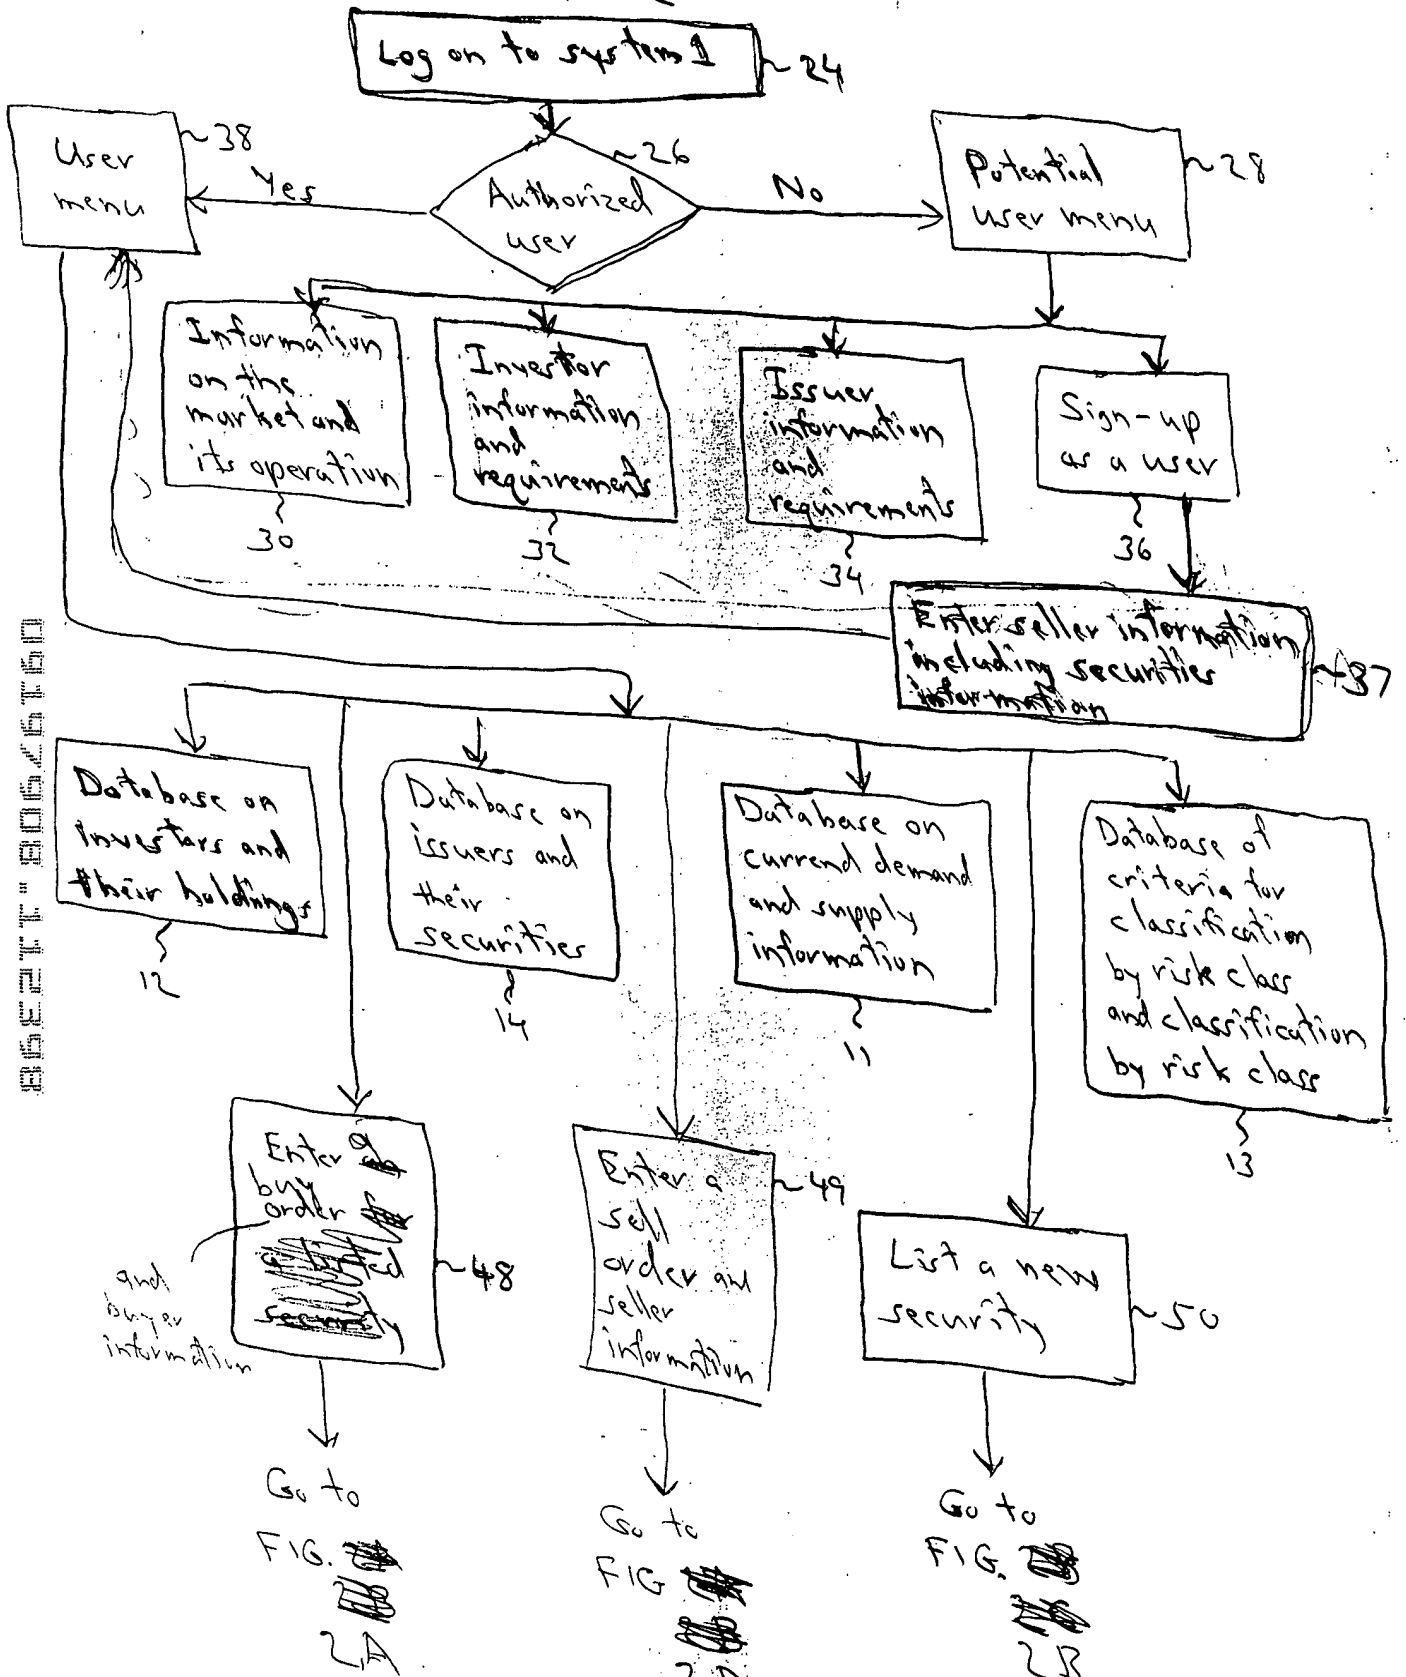 Log on to system 1
~24
User
menu
~38
Yes
Authorized
user
~26
No
Potential
user menu
~28
Information
on the
market and
its operation
30
Investor
information
and
requirements
32
Issuer
information
and
requirements
34
Sign-up
as a user
36
Enter seller information
including securities
information
~37
Database on
investors and
their holdings
12
Database on
issuers and
their
securities
14
Database on
currend demand
and supply
information
11
Database of
criteria for
classification
by risk class
and classification
by risk class
13
Enter a
buy
order
a listed
security
~48
and
buyer
information
Enter a
sell
order and
seller
information
~49
List a new
security
~50
Go to
FIG.
2A
Go to
FIG
Go to
FIG.
2B